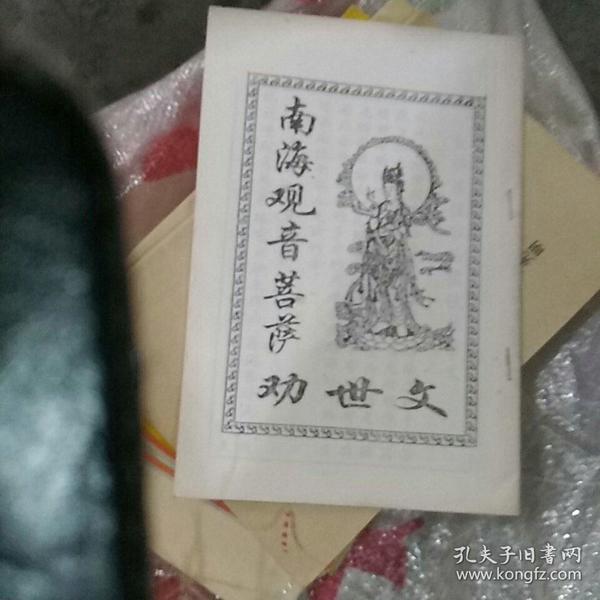 南海观音菩萨
劝世文
孔夫子旧书网
www.kongfz.com